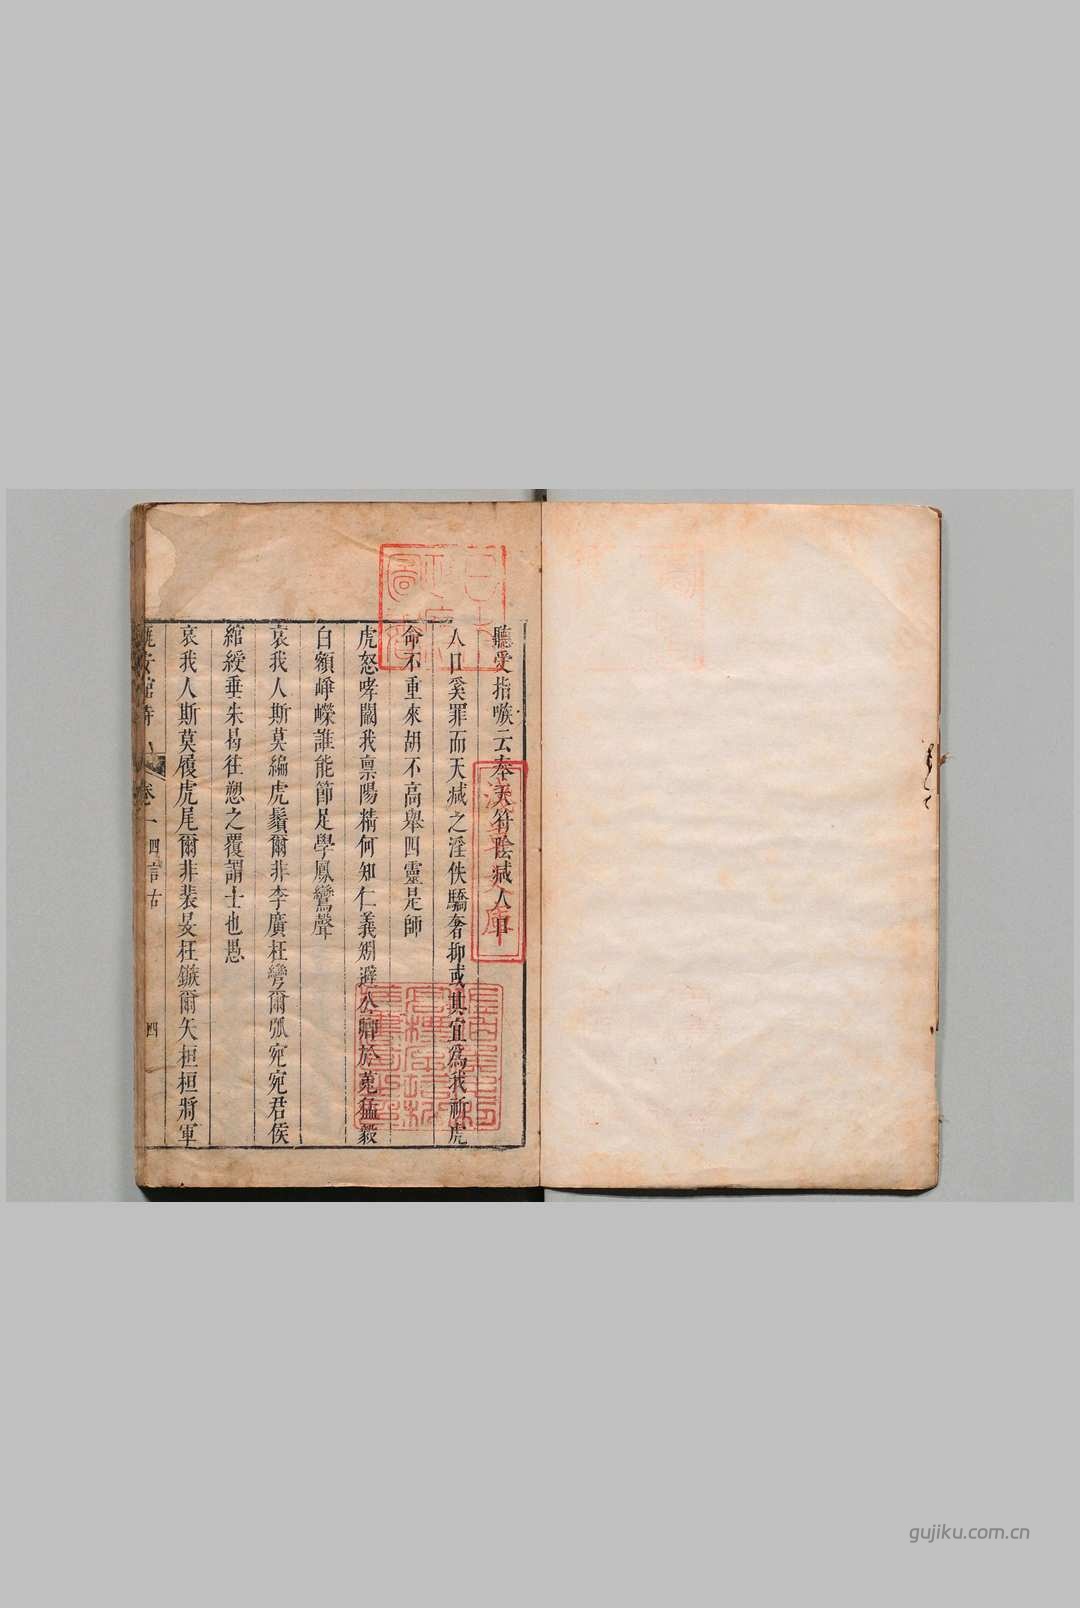 聽受指嗾云奉天符陰滅人口
人口奚罪而天滅之淫佚驕奢抑或其宜爲我祈虎
命不重來胡不高舉四靈是師
虎怒哮闞我禀陽精何知仁義矧避公卿於菟猛毅
白額崢嶸誰能節足學鳳鸞聲
哀我人斯莫編虎鬚爾非李廣枉彎爾弧宛宛君侯
綰綬垂朱曷往愬之覆謂士也愚
哀我人斯莫履虎尾爾非裴旻枉鏃爾矢桓桓將軍
卷一
四言古
四
gujiku.com.cn